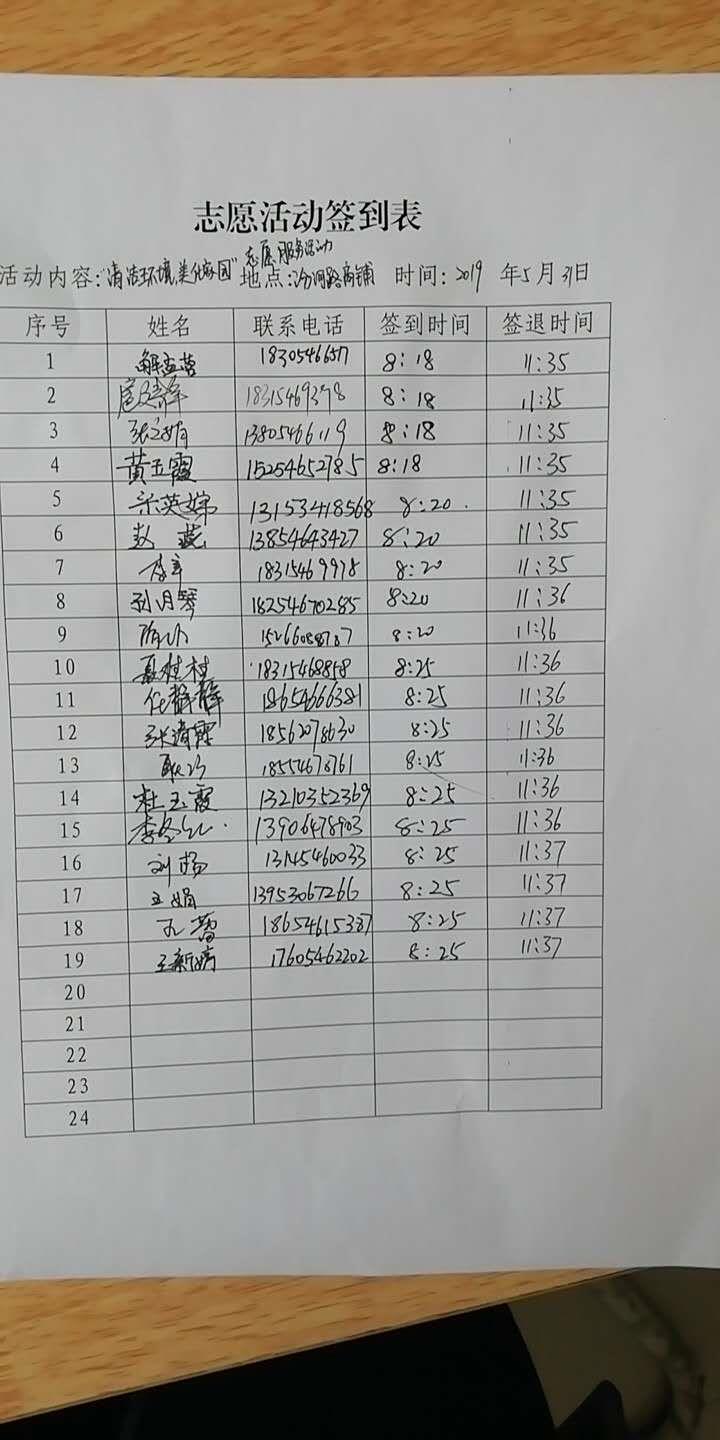 志愿活动签到表
志愿服务活动
活动内容:"清洁环境,美化家园" 地点:汾河路商铺 时间:2019 年5月31日
序号 姓名 联系电话 签到时间 签退时间
1 解孟营 8:18 11:35
2 18315469378 8:18 11:35
3 13805466119 8:18 11:35
4 黄玉霞 15254652785 8:18 11:35
5 13153418568 8:20 11:35
6 赵 13854643427 8:20 11:35
7 18315469978 8:20 11:35
8 刘月琴 18254670285 8:20 11:36
9 8:20 11:36
10 聂桂村 18315468858 8:25 11:36
11 任静静 18654666381 8:25 11:36
12 张清霞 18562078630 8:25 11:36
13 18554678761 8:25 11:36
14 杜玉霞 13210352369 8:25 11:36
15 李冬红 13906478903 8:25 11:36
16 刘杨 13145460033 8:25 11:37
17 王娟 13953067266 8:25 11:37
18 孔蕾 18654615387 8:25 11:37
19 王新婷 17605462202 8:25 11:37
20
21
22
23
24